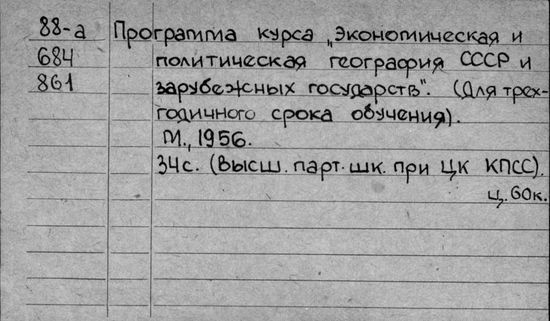 88-а Программа курса „Экономическая и
684 политическая география СССР и
861 зарубежных государств". (Для трех-
годичного срока обучения).
М., 1956.
34с. (Высш. парт. шк. при ЦК КПСС).
ц. 60к.